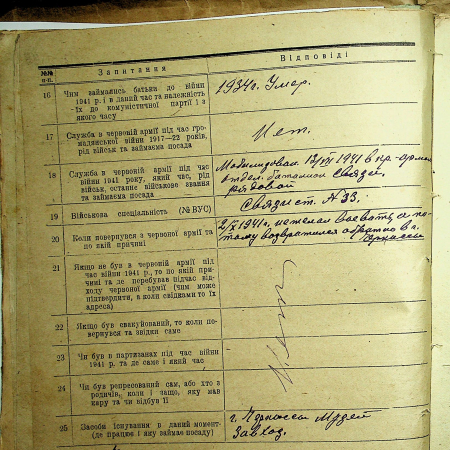 №№ п-п.
Запитання
Відповіді
16
Чим займались батьки до війни
1941 р. і в даний час та належність
їх до комуністичної партії і з
якого часу
1934г. Умер.
17
Служба в червоній армії під час гро-
мадянської війни 1917—22 років,
рід військ та займаема посада
Нет.
18
Служба в червоній армії під час
війни 1941 року, який час, рід
військ, останнє військове звання
та займаема посада
Мобилизован 1941 в кр. армию
отдел. батальон Связи.
рядовой
19
Військова спеціальність (№ ВУС)
Связист. № 33.
20
Коли повернувся з червоної армії та
по якій причині
2/IX 1941г. не желал воевать и по-
тому возвратился обратно в г.
Черкассы
21
Якщо не був в червоній армії під
час війни 1941 р., то по якій при-
чині та де перебував підчас від-
ходу червоної армії (чим може
підтвердити, а коли свідками то їх
адреса)
22
Якщо був евакуйований, то коли по-
вернувся та звідки саме
23
Чи був в партизанах під час війни
1941 р. та де саме і який час
24
Чи був репресований сам, або хто з
родичів, коли і защо, яку мав
кару та чи відбув її
25
Засоби існування в даний момент-
(де працює і яку займає посаду)
г. Черкассы Музей
Завхоз.